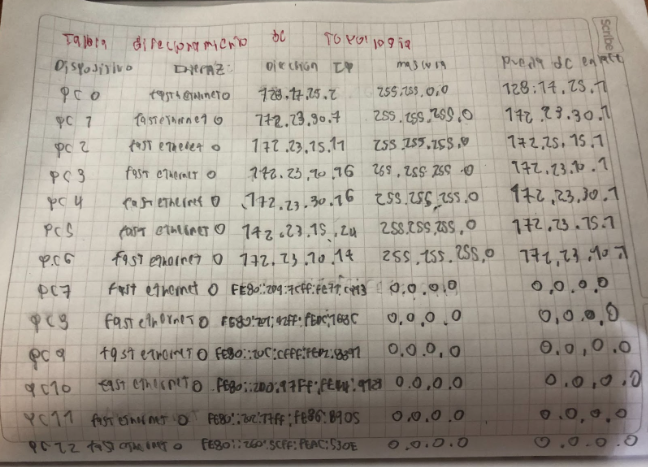 Tabla direcionamiento de Topologia
Dispositivo Interfaz: Direccion IP mascara Puerta de enlace
PC 0 fastethernet 0 128.17.25.2 255.255.0.0 128.17.25.1
PC 1 fastethernet 0 172.23.30.7 255.255.255.0 172.23.30.1
PC 2 fast ethernet 0 172.23.15.11 255.255.255.0 172.23.15.1
PC 3 fast ethernet 0 172.23.10.16 255.255.255.0 172.23.10.1
PC 4 fast ethernet 0 172.23.30.16 255.255.255.0 172.23.30.1
PC 5 fast ethernet 0 172.23.15.24 255.255.255.0 172.23.15.1
PC 6 fast ethernet 0 172.23.10.14 255.255.255.0 172.23.10.1
PC7 fast ethernet 0 0.0.0.0 0.0.0.0
PC 8 fast ethernet 0 0.0.0.0 0.0.0.0
PC 9 fast ethernet 0 0.0.0.0 0.0.0.0
PC10 east ethernet 0 0.0.0.0 0.0.0.0
PC11 fast ethernet 0 0.0.0.0 0.0.0.0
PC12 fast ethernet 0 FE80::260:5CFF:FEAC:530E 0.0.0.0 0.0.0.0
Scribe